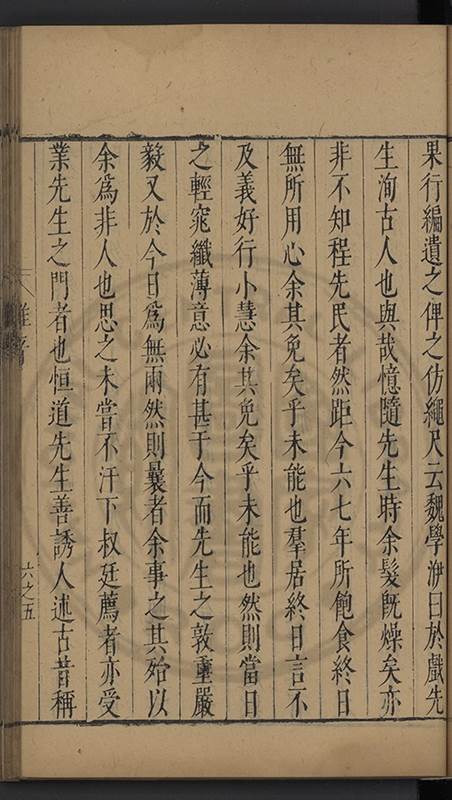 果行編遺之俾之仿繩尺云魏學洢曰於戲先
生洵古人也與哉憶隨先生時余髮旣燥矣亦
非不知程先民者然距今六七年所飽食終日
無所用心余其免矣乎未能也羣居終日言不
及義好行小慧余其免矣乎未能也然則當日
之輕窕纖薄意必有甚于今而先生之敦重嚴
毅又於今日爲無兩然則曩者余事之其殆以
余爲非人也思之未嘗不汗下叔廷薦者亦受
業先生之門者也恒道先生善誘人述古昔稱
六之五